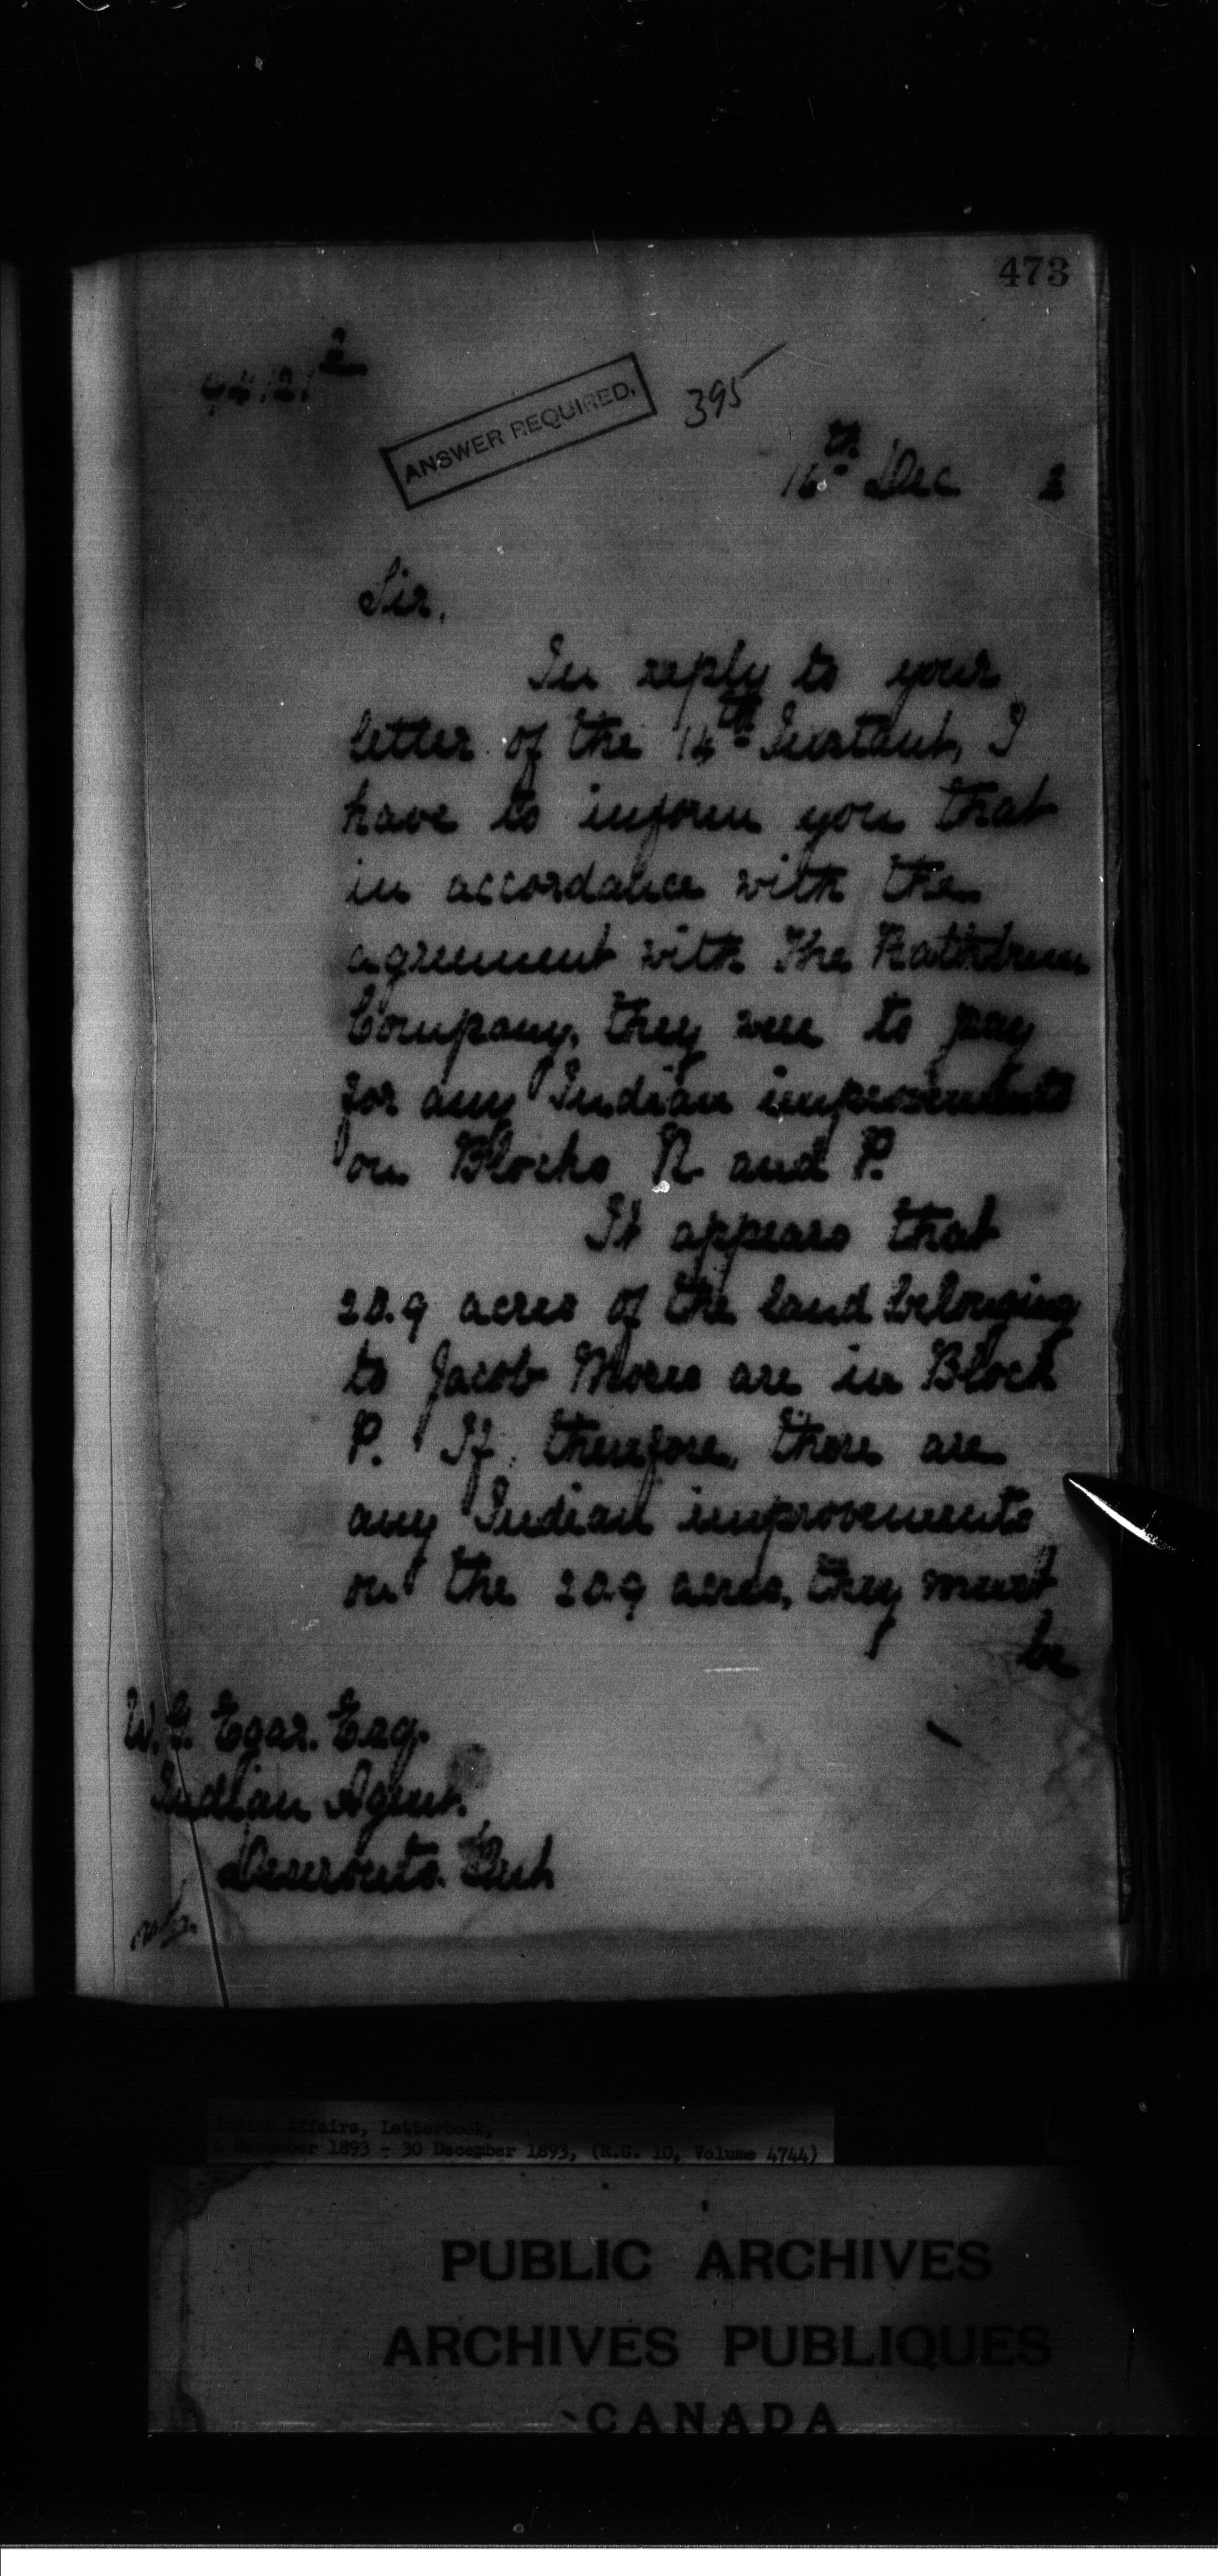 473
ANSWER REQUIRED.
395
16th Dec 2
Sir,
In reply to your
letter of the 14th Instant, I
have to inform you that
in accordance with the
agreement with the Rathbun
Company, they were to pay
for any Indian improvements
on Blocks R and P.
It appears that
20.9 acres of the land belonging
to Jacob Moses are in Block
P. If, therefore, there are
any Indian improvements
on the 20.9 acres, they must
be
W.G. Egar. Esq.
Indian Agent.
Deseronto. Ont
Indian Affairs, Letterbook,
December 1893 - 30 December 1893, (R.G. 10, Volume 4744)
PUBLIC ARCHIVES
ARCHIVES PUBLIQUES
CANADA